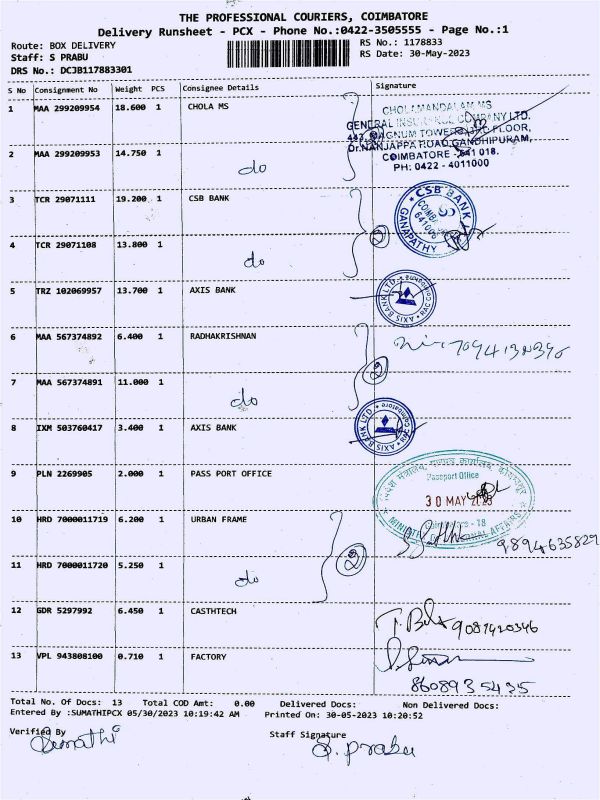 THE PROFESSIONAL COURIERS, COIMBATORE
Delivery Runsheet - PCX - Phone No.:0422-3505555 - Page No.:1
Route: BOX DELIVERY RS No.: 1178833
Staff: S PRABU RS Date: 30-May-2023
DRS No.: DCJB117883301
S No Consignment No Weight PCS Consignee Details Signature
1 MAA 299209954 18.600 1 CHOLA MS
CHOLAMANDALAM MS
GENERAL INSURANCE COMPANY LTD.
MAGNUM TOWERS, FLOOR,
Dr.NANJAPPA ROAD, GANDHIPURAM,
COIMBATORE - 641 018.
PH: 0422 - 4011000
2 MAA 299209953 14.750 1 do
3 TCR 29071111 19.200 1 CSB BANK
CSB BANK
GANAPATHY
4 TCR 29071108 13.800 1 do 2
5 TRZ 102069957 13.700 1 AXIS BANK
AXIS BANK LTD.
6 MAA 567374892 6.400 1 RADHAKRISHNAN
7 MAA 567374891 11.000 1 do 2
8 IXM 503760417 3.400 1 AXIS BANK
AXIS BANK LTD. Coimbatore
9 PLN 2269905 2.000 1 PASS PORT OFFICE
Passport Office
30 MAY 2023
Coimbatore - 18
10 HRD 7000011719 6.200 1 URBAN FRAME
9894635829
11 HRD 7000011720 5.250 1 do 2
12 GDR 5297992 6.450 1 CASTHTECH
9087420346
13 VPL 943808100 0.710 1 FACTORY
8608935435
Total No. Of Docs: 13 Total COD Amt: 0.00 Delivered Docs: Non Delivered Docs:
Entered By :SUMATHIPCX 05/30/2023 10:19:42 AM Printed On: 30-05-2023 10:20:52
Verified By Staff Signature
Sumathi S. prabu